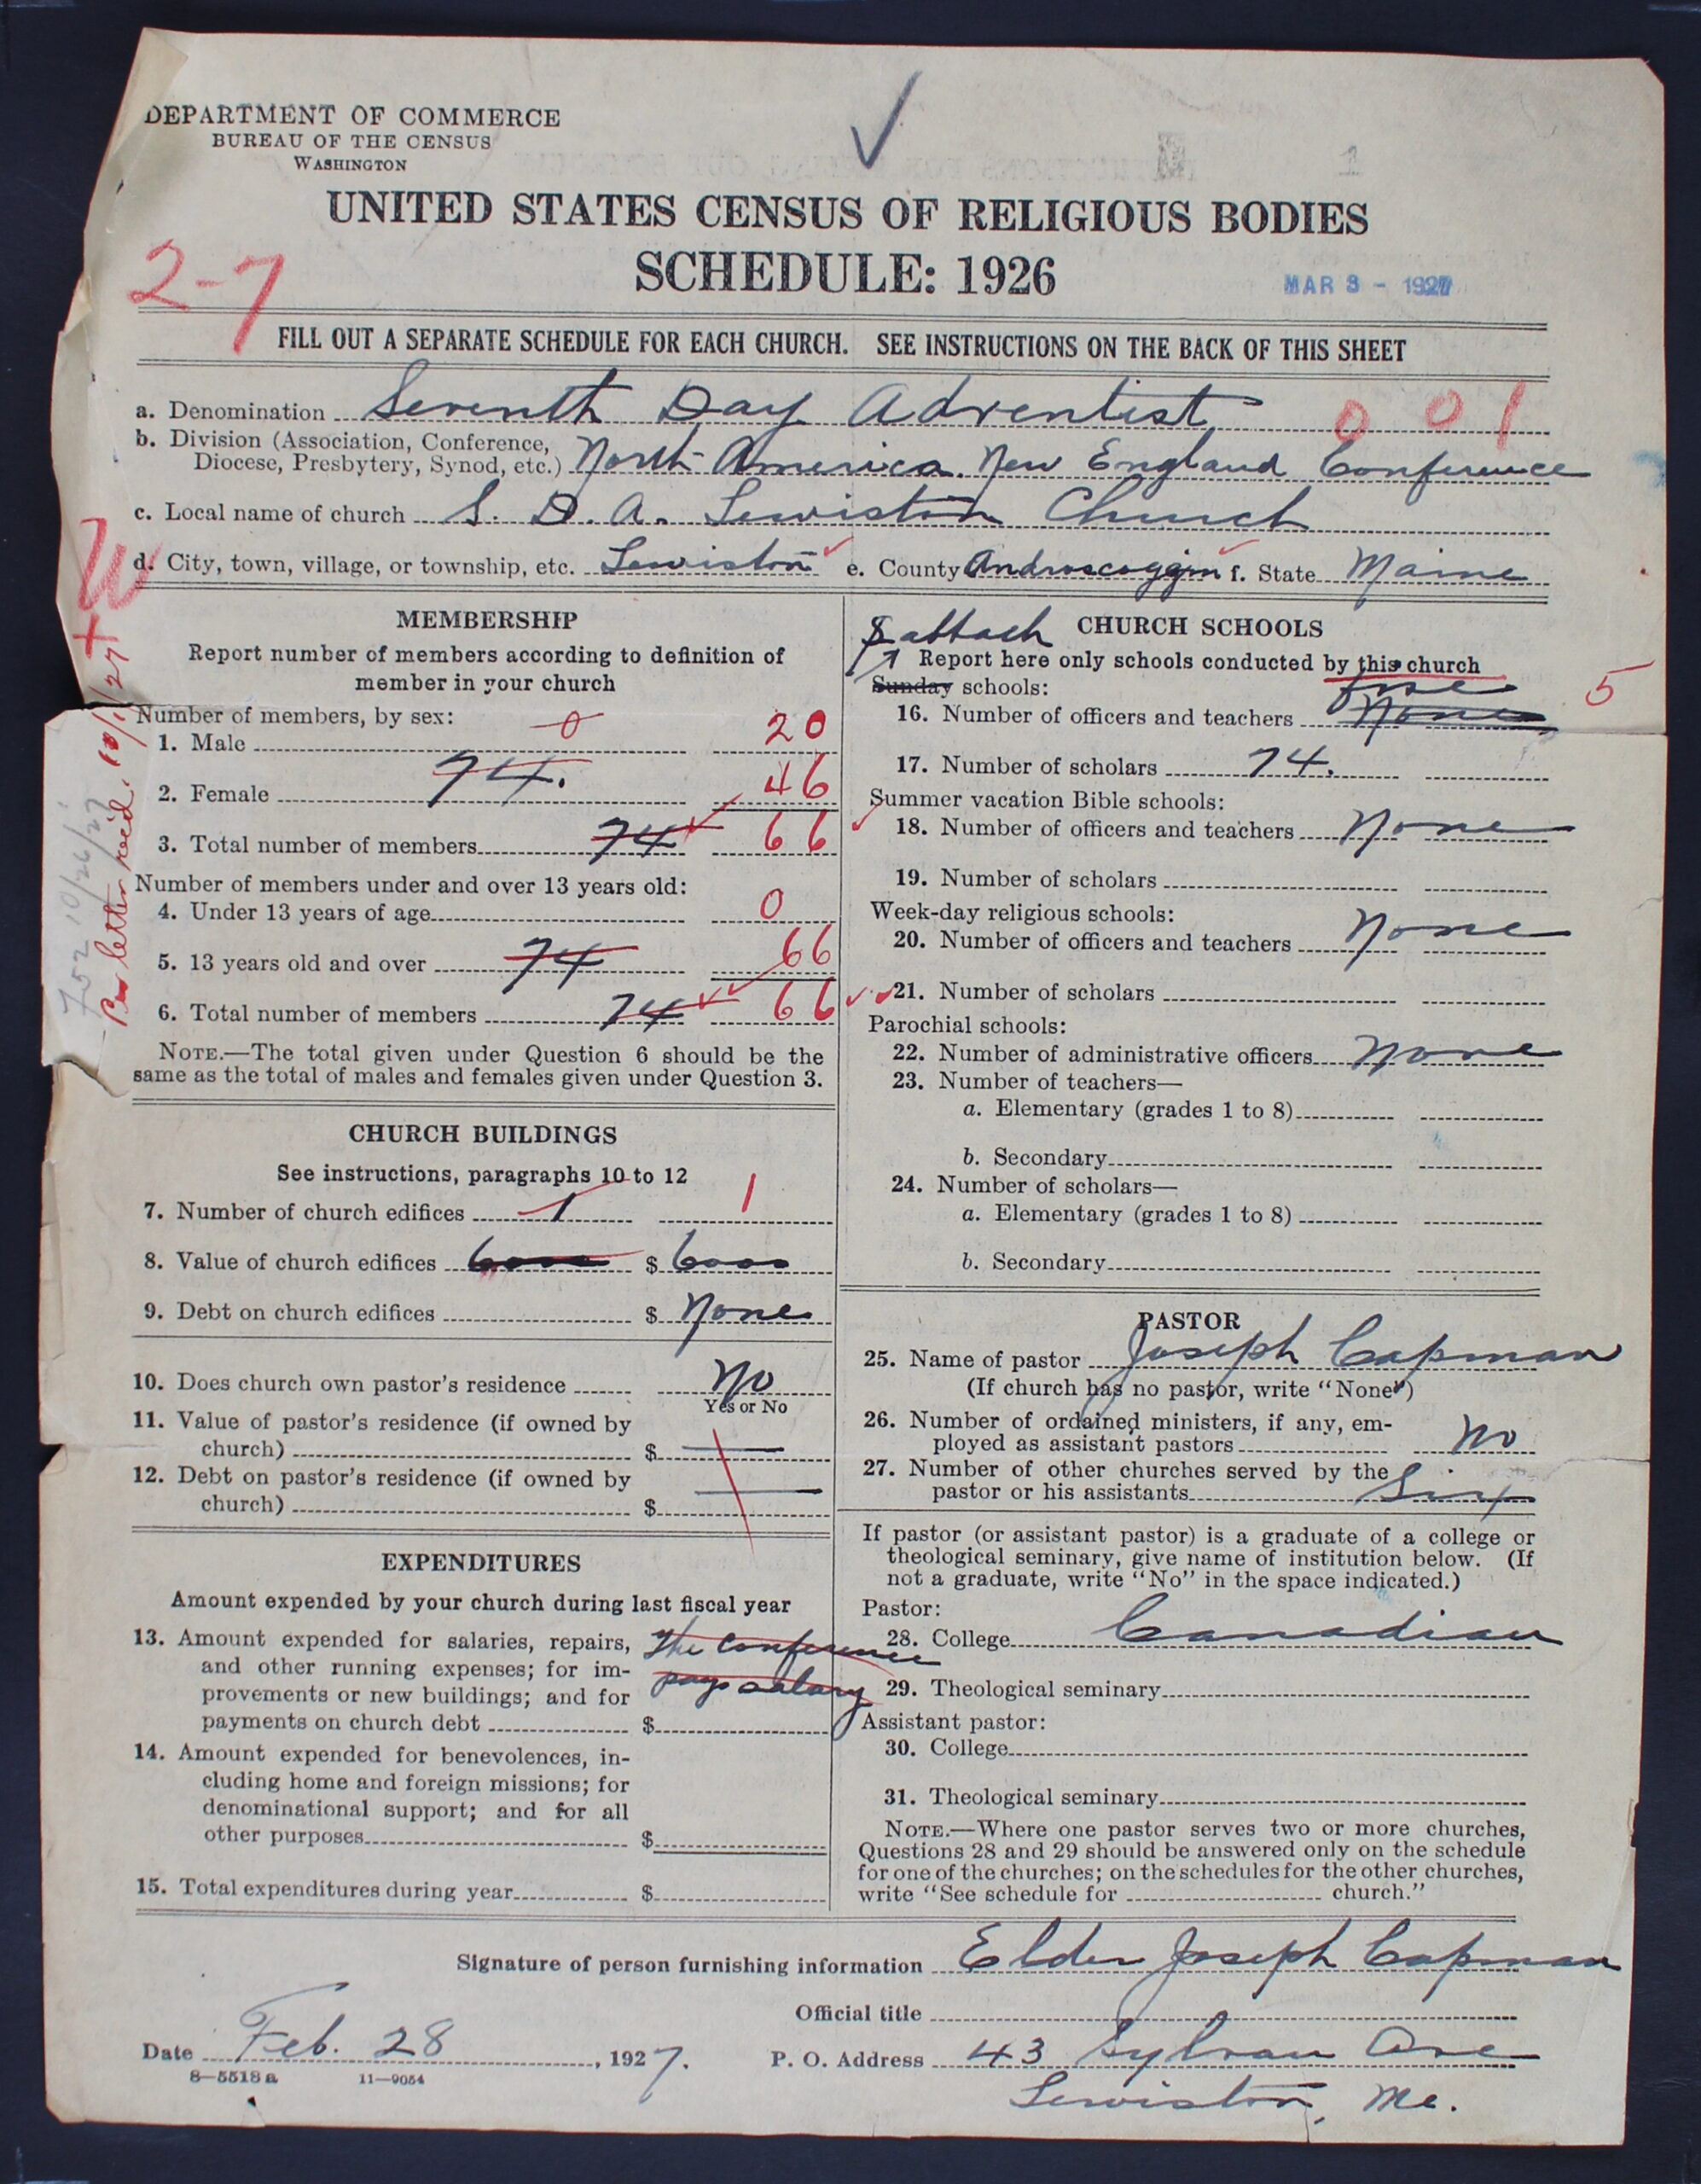 DEPARTMENT OF COMMERCE
BUREAU OF THE CENSUS
WASHINGTON
UNITED STATES CENSUS OF RELIGIOUS BODIES
SCHEDULE: 1926
MAR 3 - 1927
2-7
FILL OUT A SEPARATE SCHEDULE FOR EACH CHURCH. SEE INSTRUCTIONS ON THE BACK OF THIS SHEET
a. Denomination Seventh Day Adventist 001
b. Division (Association, Conference,
Diocese, Presbytery, Synod, etc.) North America. New England Conference
c. Local name of church S. D. A. Lewiston Church
d. City, town, village, or township, etc. Lewiston e. County Androscoggin f. State Maine
W
+
Per letter recd. 10/1/27
752 10/26/27
MEMBERSHIP
Report number of members according to definition of
member in your church
Number of members, by sex:
1. Male 0 20
2. Female 74. 46
3. Total number of members 74 66
Number of members under and over 13 years old:
4. Under 13 years of age 0
5. 13 years old and over 74 66
6. Total number of members 74 66
NOTE.—The total given under Question 6 should be the
same as the total of males and females given under Question 3.
CHURCH BUILDINGS
See instructions, paragraphs 10 to 12
7. Number of church edifices 1 1
8. Value of church edifices 6000 $ 6000
9. Debt on church edifices $ None
10. Does church own pastor's residence No
Yes or No
11. Value of pastor's residence (if owned by
church) $
12. Debt on pastor's residence (if owned by
church) $
EXPENDITURES
Amount expended by your church during last fiscal year
13. Amount expended for salaries, repairs,
and other running expenses; for im-
provements or new buildings; and for
payments on church debt $
The Conference
pays salary
14. Amount expended for benevolences, in-
cluding home and foreign missions; for
denominational support; and for all
other purposes $
15. Total expenditures during year $
Sabbath CHURCH SCHOOLS
Report here only schools conducted by this church
Sunday schools:
five 5
16. Number of officers and teachers None
17. Number of scholars 74.
Summer vacation Bible schools:
18. Number of officers and teachers None
19. Number of scholars
Week-day religious schools:
20. Number of officers and teachers None
21. Number of scholars
Parochial schools:
22. Number of administrative officers None
23. Number of teachers—
a. Elementary (grades 1 to 8)
b. Secondary
24. Number of scholars—
a. Elementary (grades 1 to 8)
b. Secondary
PASTOR
25. Name of pastor Joseph Capman
(If church has no pastor, write "None")
26. Number of ordained ministers, if any, em-
ployed as assistant pastors No
27. Number of other churches served by the
pastor or his assistants Six
If pastor (or assistant pastor) is a graduate of a college or
theological seminary, give name of institution below. (If
not a graduate, write "No" in the space indicated.)
Pastor:
28. College Canadian
29. Theological seminary
Assistant pastor:
30. College
31. Theological seminary
NOTE.—Where one pastor serves two or more churches,
Questions 28 and 29 should be answered only on the schedule
for one of the churches; on the schedules for the other churches,
write "See schedule for church."
Signature of person furnishing information Elder Joseph Capman
Official title
Date Feb. 28, 1927. P. O. Address 43 Sylvan Ave
8-5518a 11-9054
Lewiston, Me.